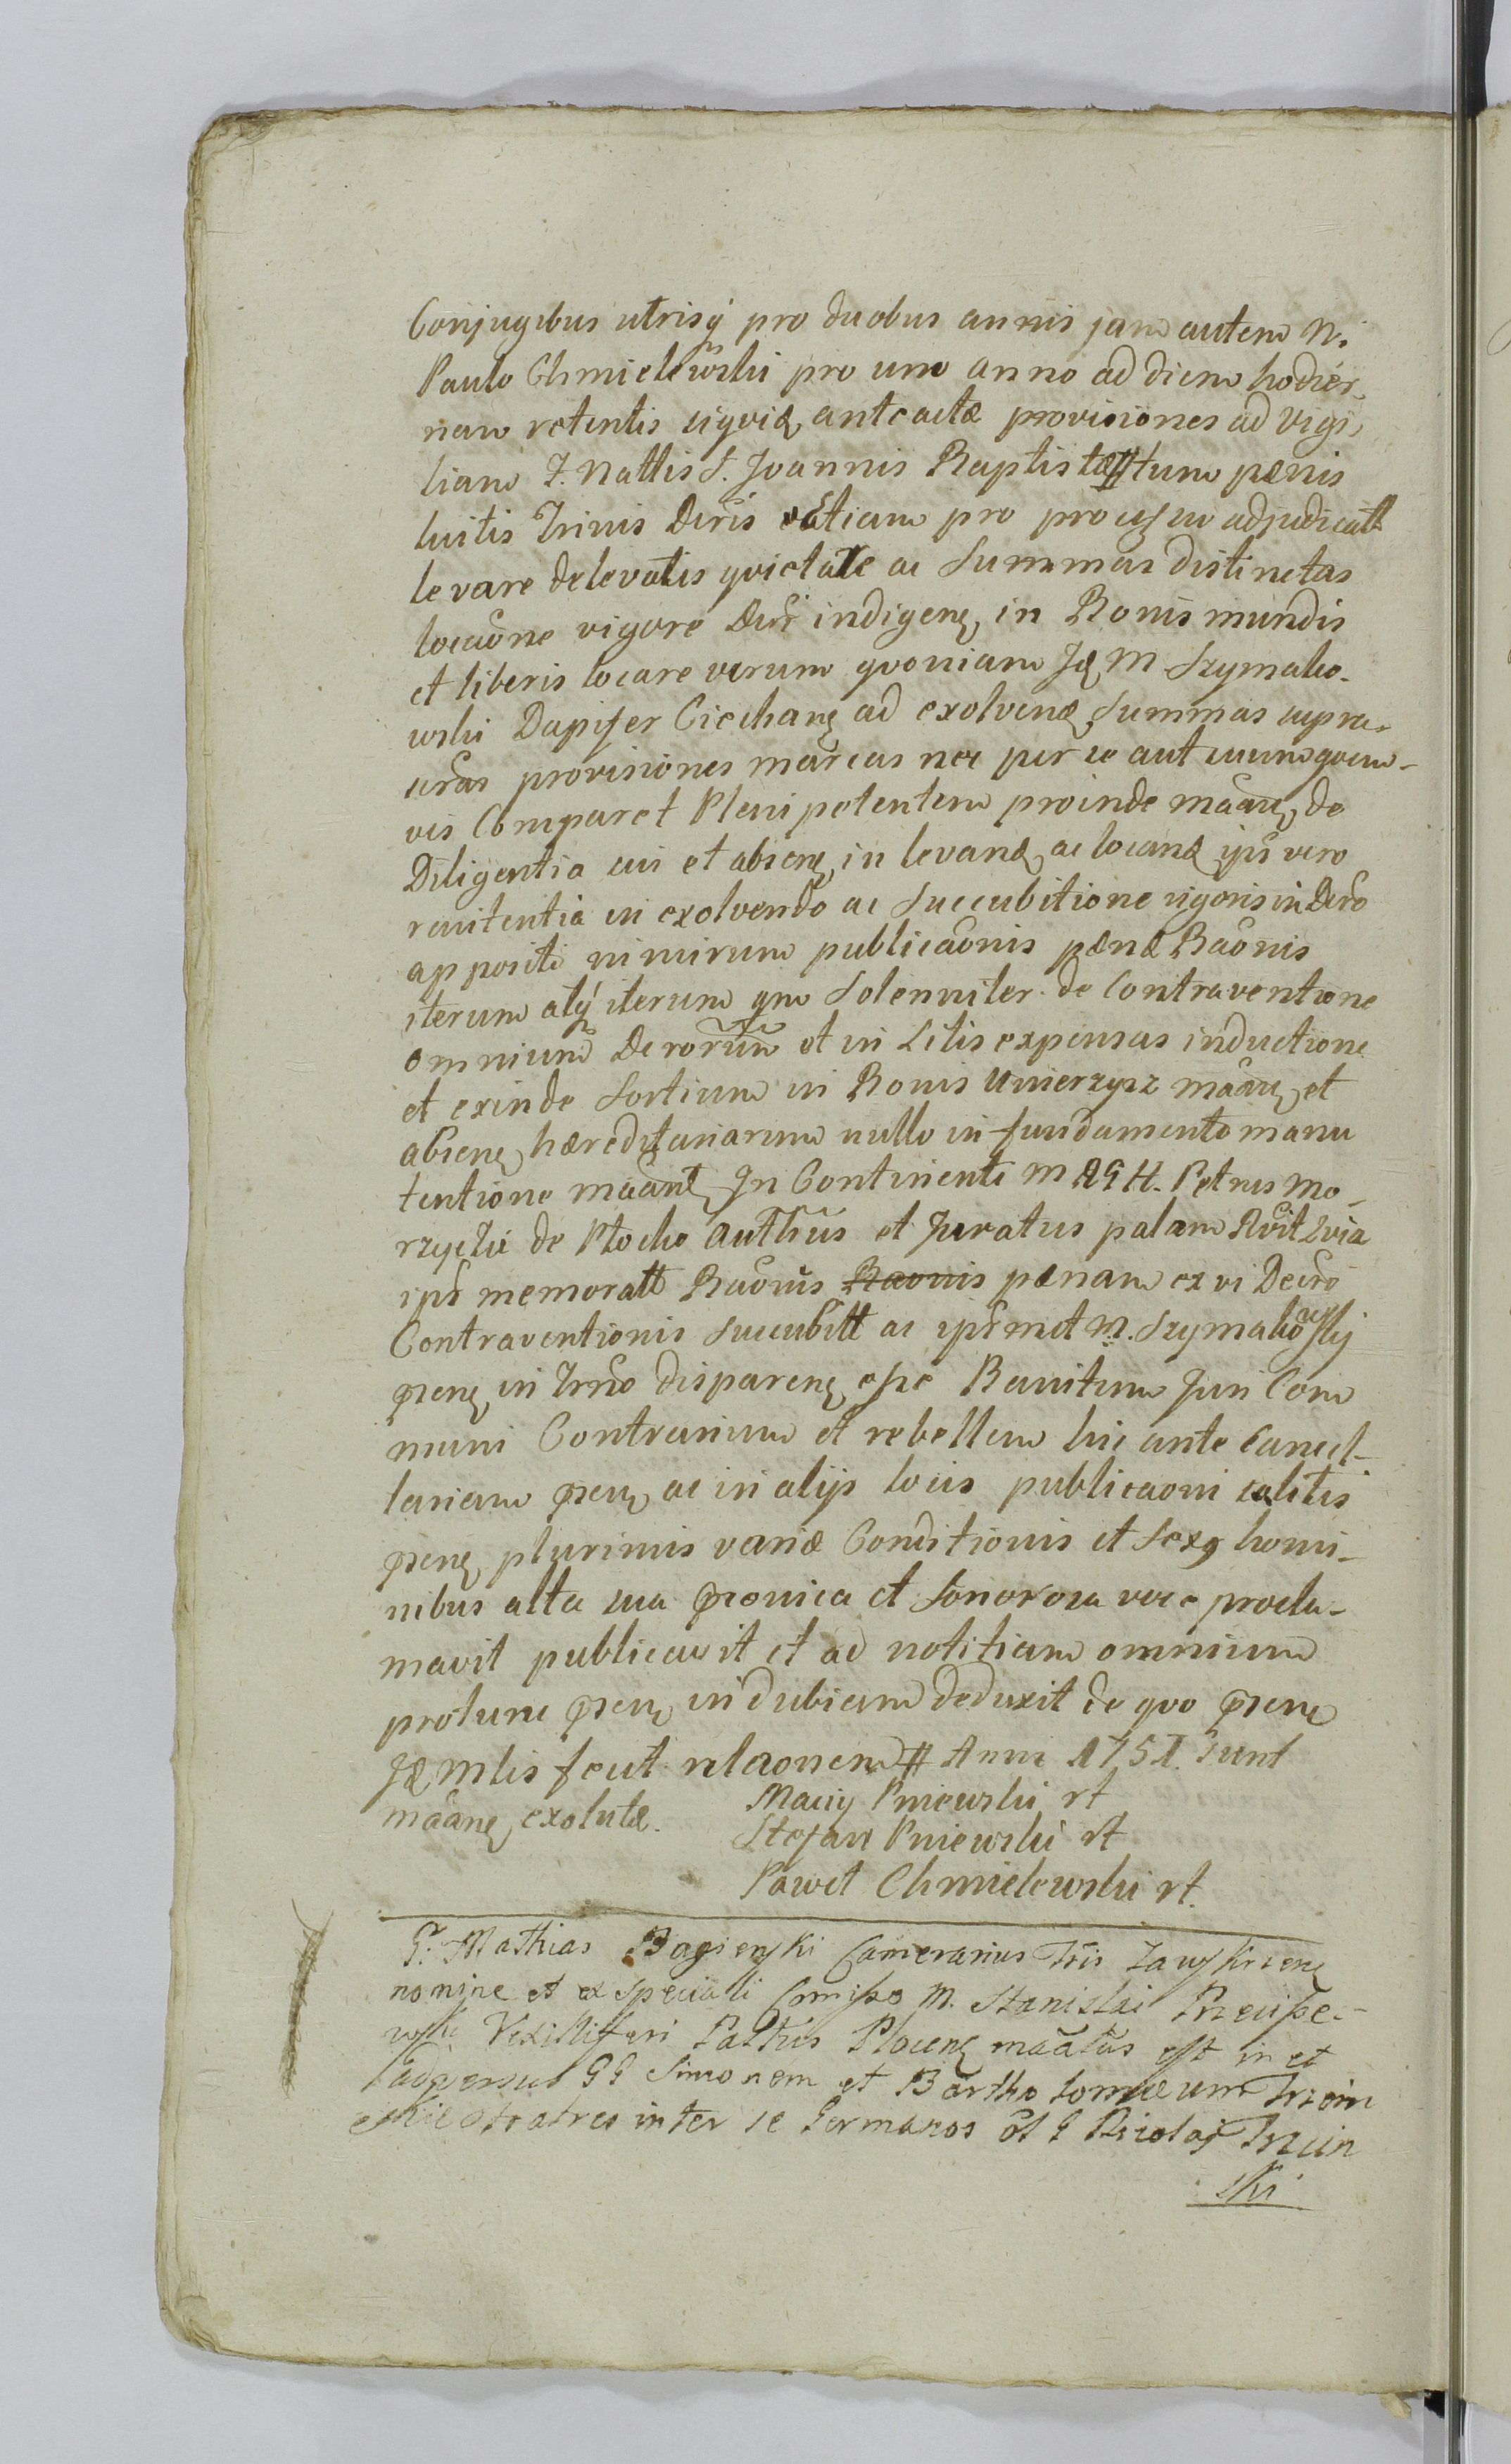 Conjugibus utrisq́ pro duobus annis jam autem N.
Paulo Chmielewski pro uno anno ad diem hodier-
nam retentis siqviḍ anteactæ provisiones ad Vigi-
liam F. Nattis S. Joannis Baptistæ # tum pœnis
luitis Trinis Decris etiam pro processu adjudicatt
levare delevatis qvietare ac Summas distinctas
locaõne vigore Decri indigeñ in Bonis mundis
et liberis locare verum qvoniam Jḍ M Szymako-
wski Dapifer Ciechanȩ ad exolvenḍ Summas supra-
scras provisiones marcas nec per se aut suum qvem-
vis Comparet Plenipotentem proinde mãañ de
Diligentia sui et absenȩ in levanḍ ac locanḍ ipŝ vero
renitentia in exolvendo ac Succubitione rigoris in Decro
appositi nimirum publicaõnis pœnæ Baõnis
iterum atq́ iterum qm Solenniter de Contraventione
omnium Decrorum et in Litis expensas inductione
et exinde Sortium in Bonis Unierzysz mãañ et
absenȩ hæreditariarum nullo in fundamento manu
tentione mãanḍ In Continenti M RGH. Petrus Mo-
rzycki de Płocko Authûs et Juratus palam
ipŝ memoratt Baõnis Baonis pœnam ex vi Decro
Contraventionis Succubitt ac ipŝmet M. Szymakowskij
pñs in Trrño disparenȩ esse Banitum Juri Com
muni Contrarium et rebellem hic ante Cancel-
lariam pñ ac in alijs locis publicaõni solitis
pñs plurimis variæ Conditionis et Sexq homi-
nibus alta sua pronica et Sonorosa voce procla-
mavit publicavit et ad notitiam omnium
protunc pñ in dubiam deduxit de quo pñ
Jḍ Mlis fecit relaõnem # Anni 1751. Sunt
mãanȩ exolutæ. Maciy Pniewski rt
Stefan Pniewski rt
Paweł Chmielewski rt.
G. Mathias Bagienski Camerarius Tris Zawskrzenȩ
nomine et ex speciali Comisso M. Stanislai Przecisze-
wski Vexilliferi Pallnus Plocenȩ maãtus est in et
adversus GG Simonem et Bartholomæum Trzcin
skie Fratres inter se Germanos ôl G Nicolaj Trzcin
ski